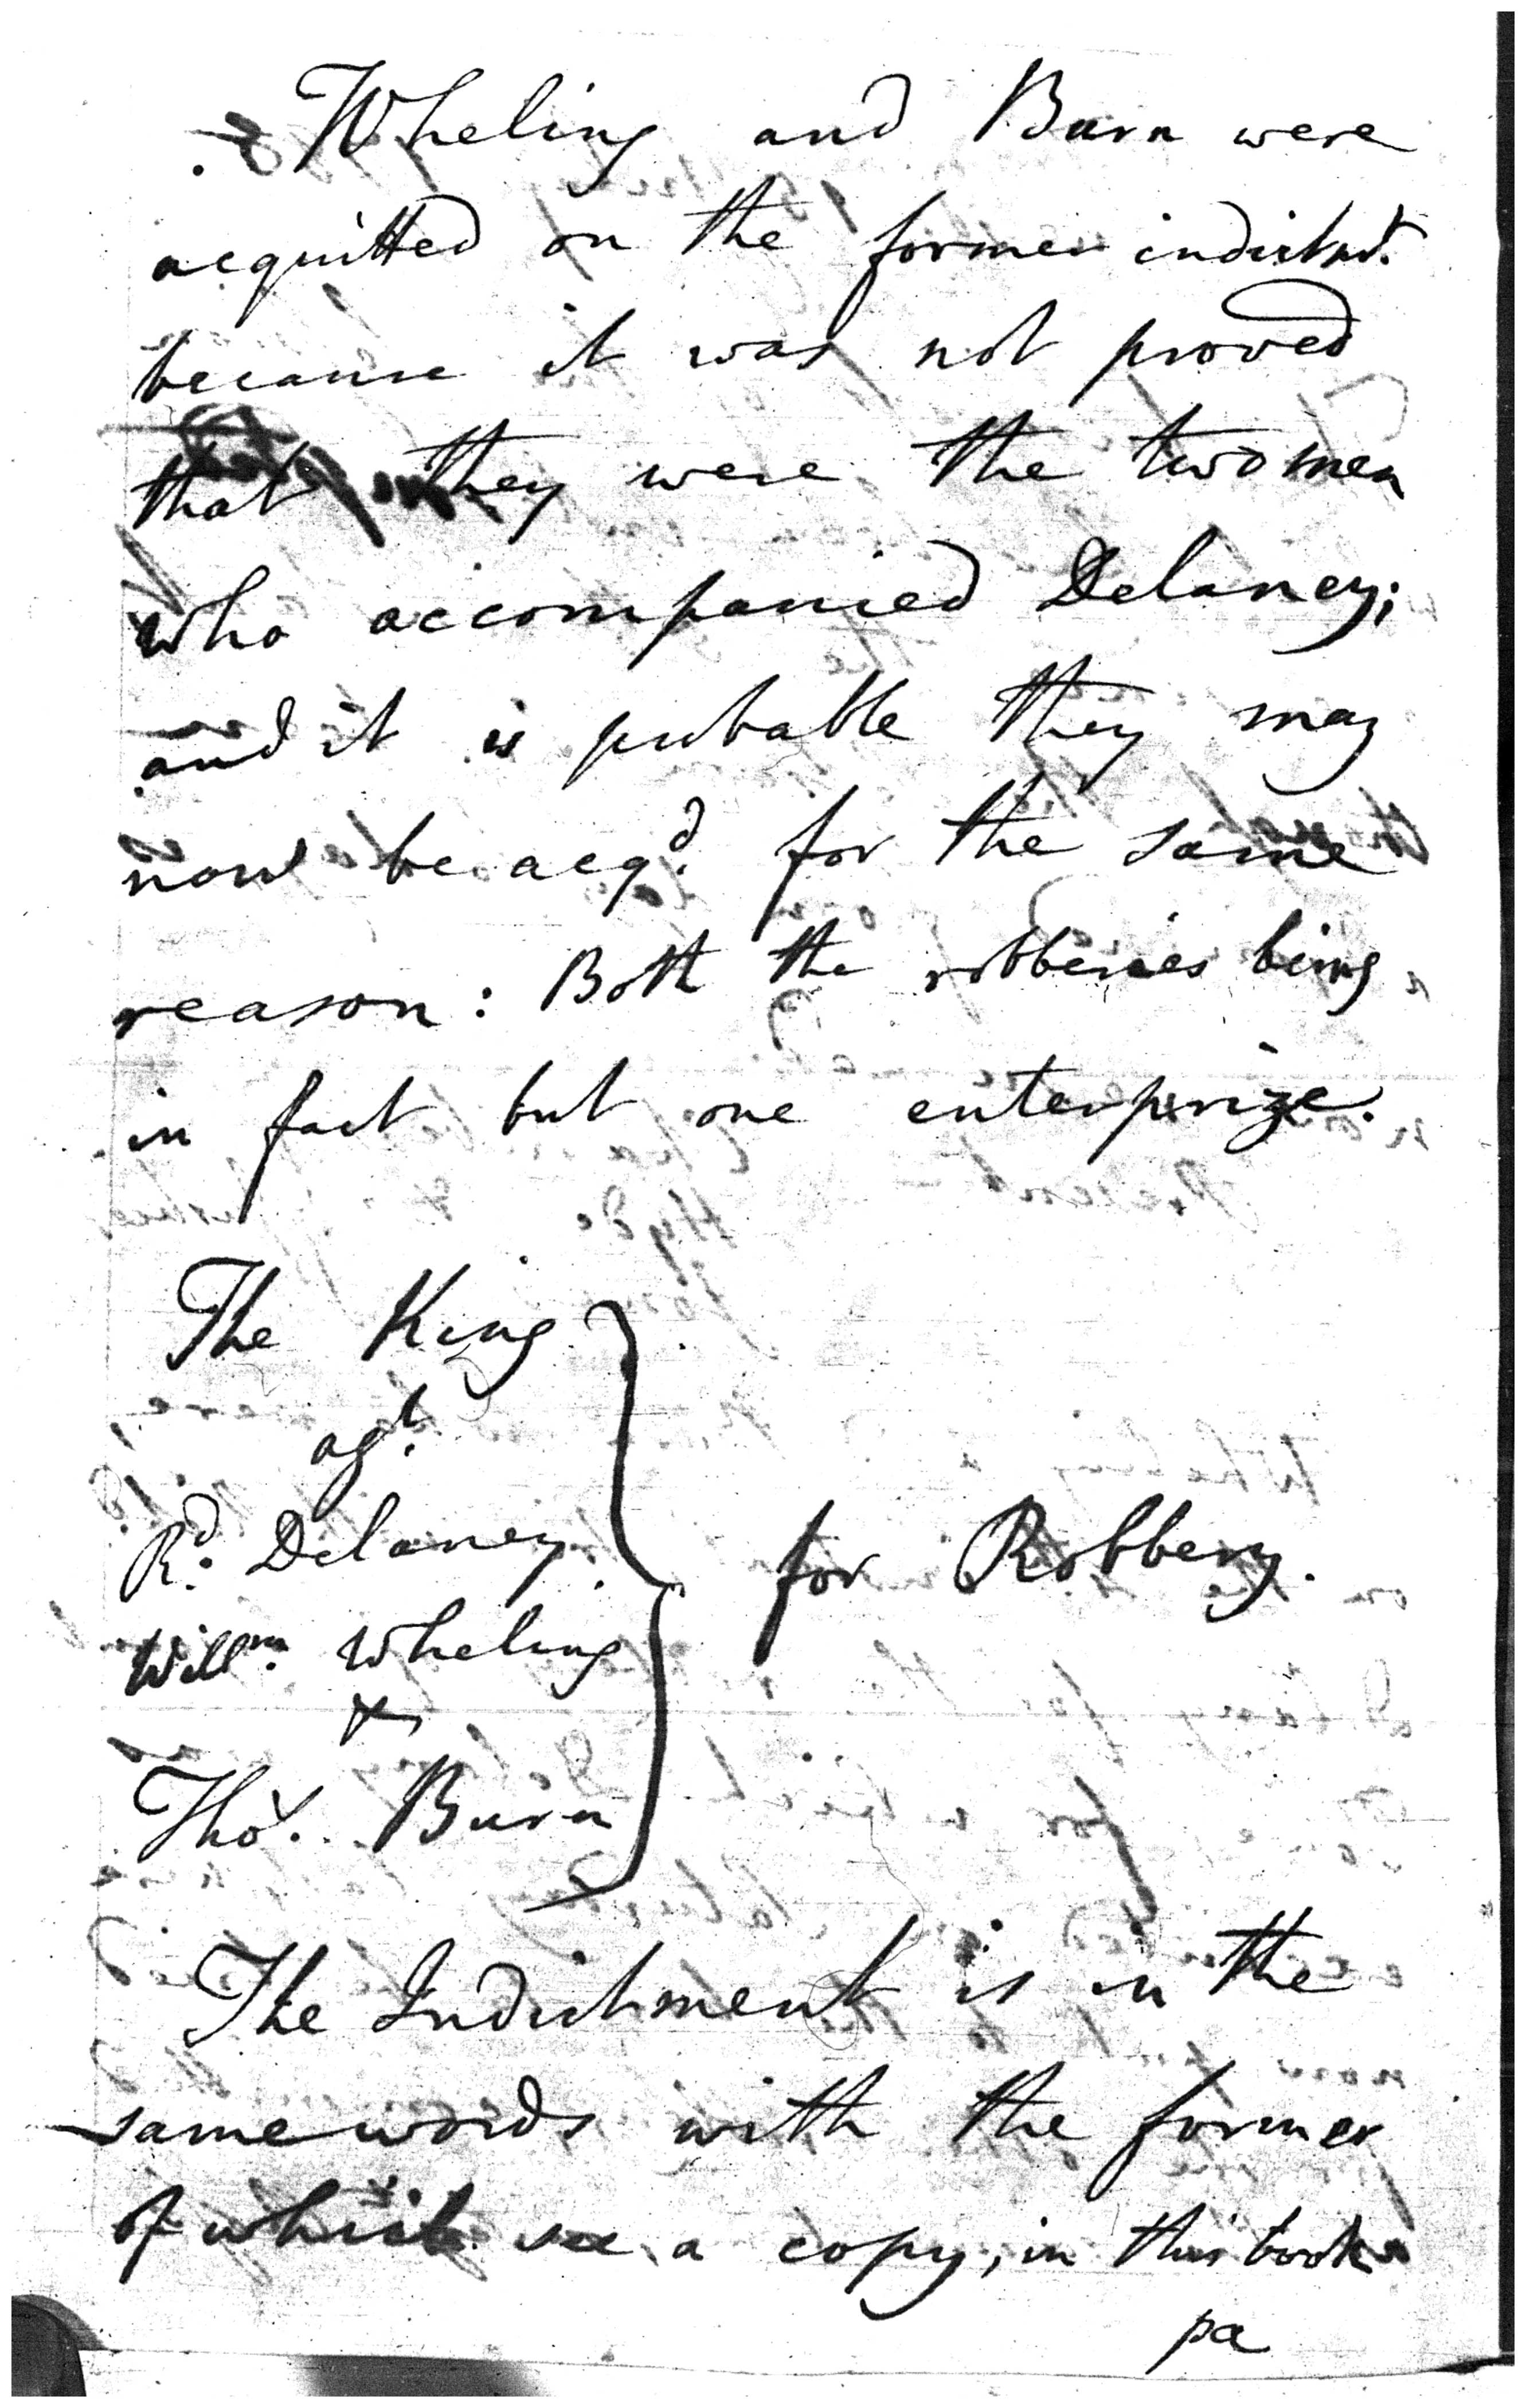 Wheling and Burn were
acquitted on the former indictmt.
because it was not proved
that they were the two men
who accompanied Delaney;
and it is probable they may
now be acqd. for the same
reason: Both the robberies being
in fact but one enterprize.
The King
agt.
Rd. Delaney
Willm. Wheling
&
Thos. Burn
for Robbery.
The Indictment is in the
same words with the former
of which see a copy, in this book
pa